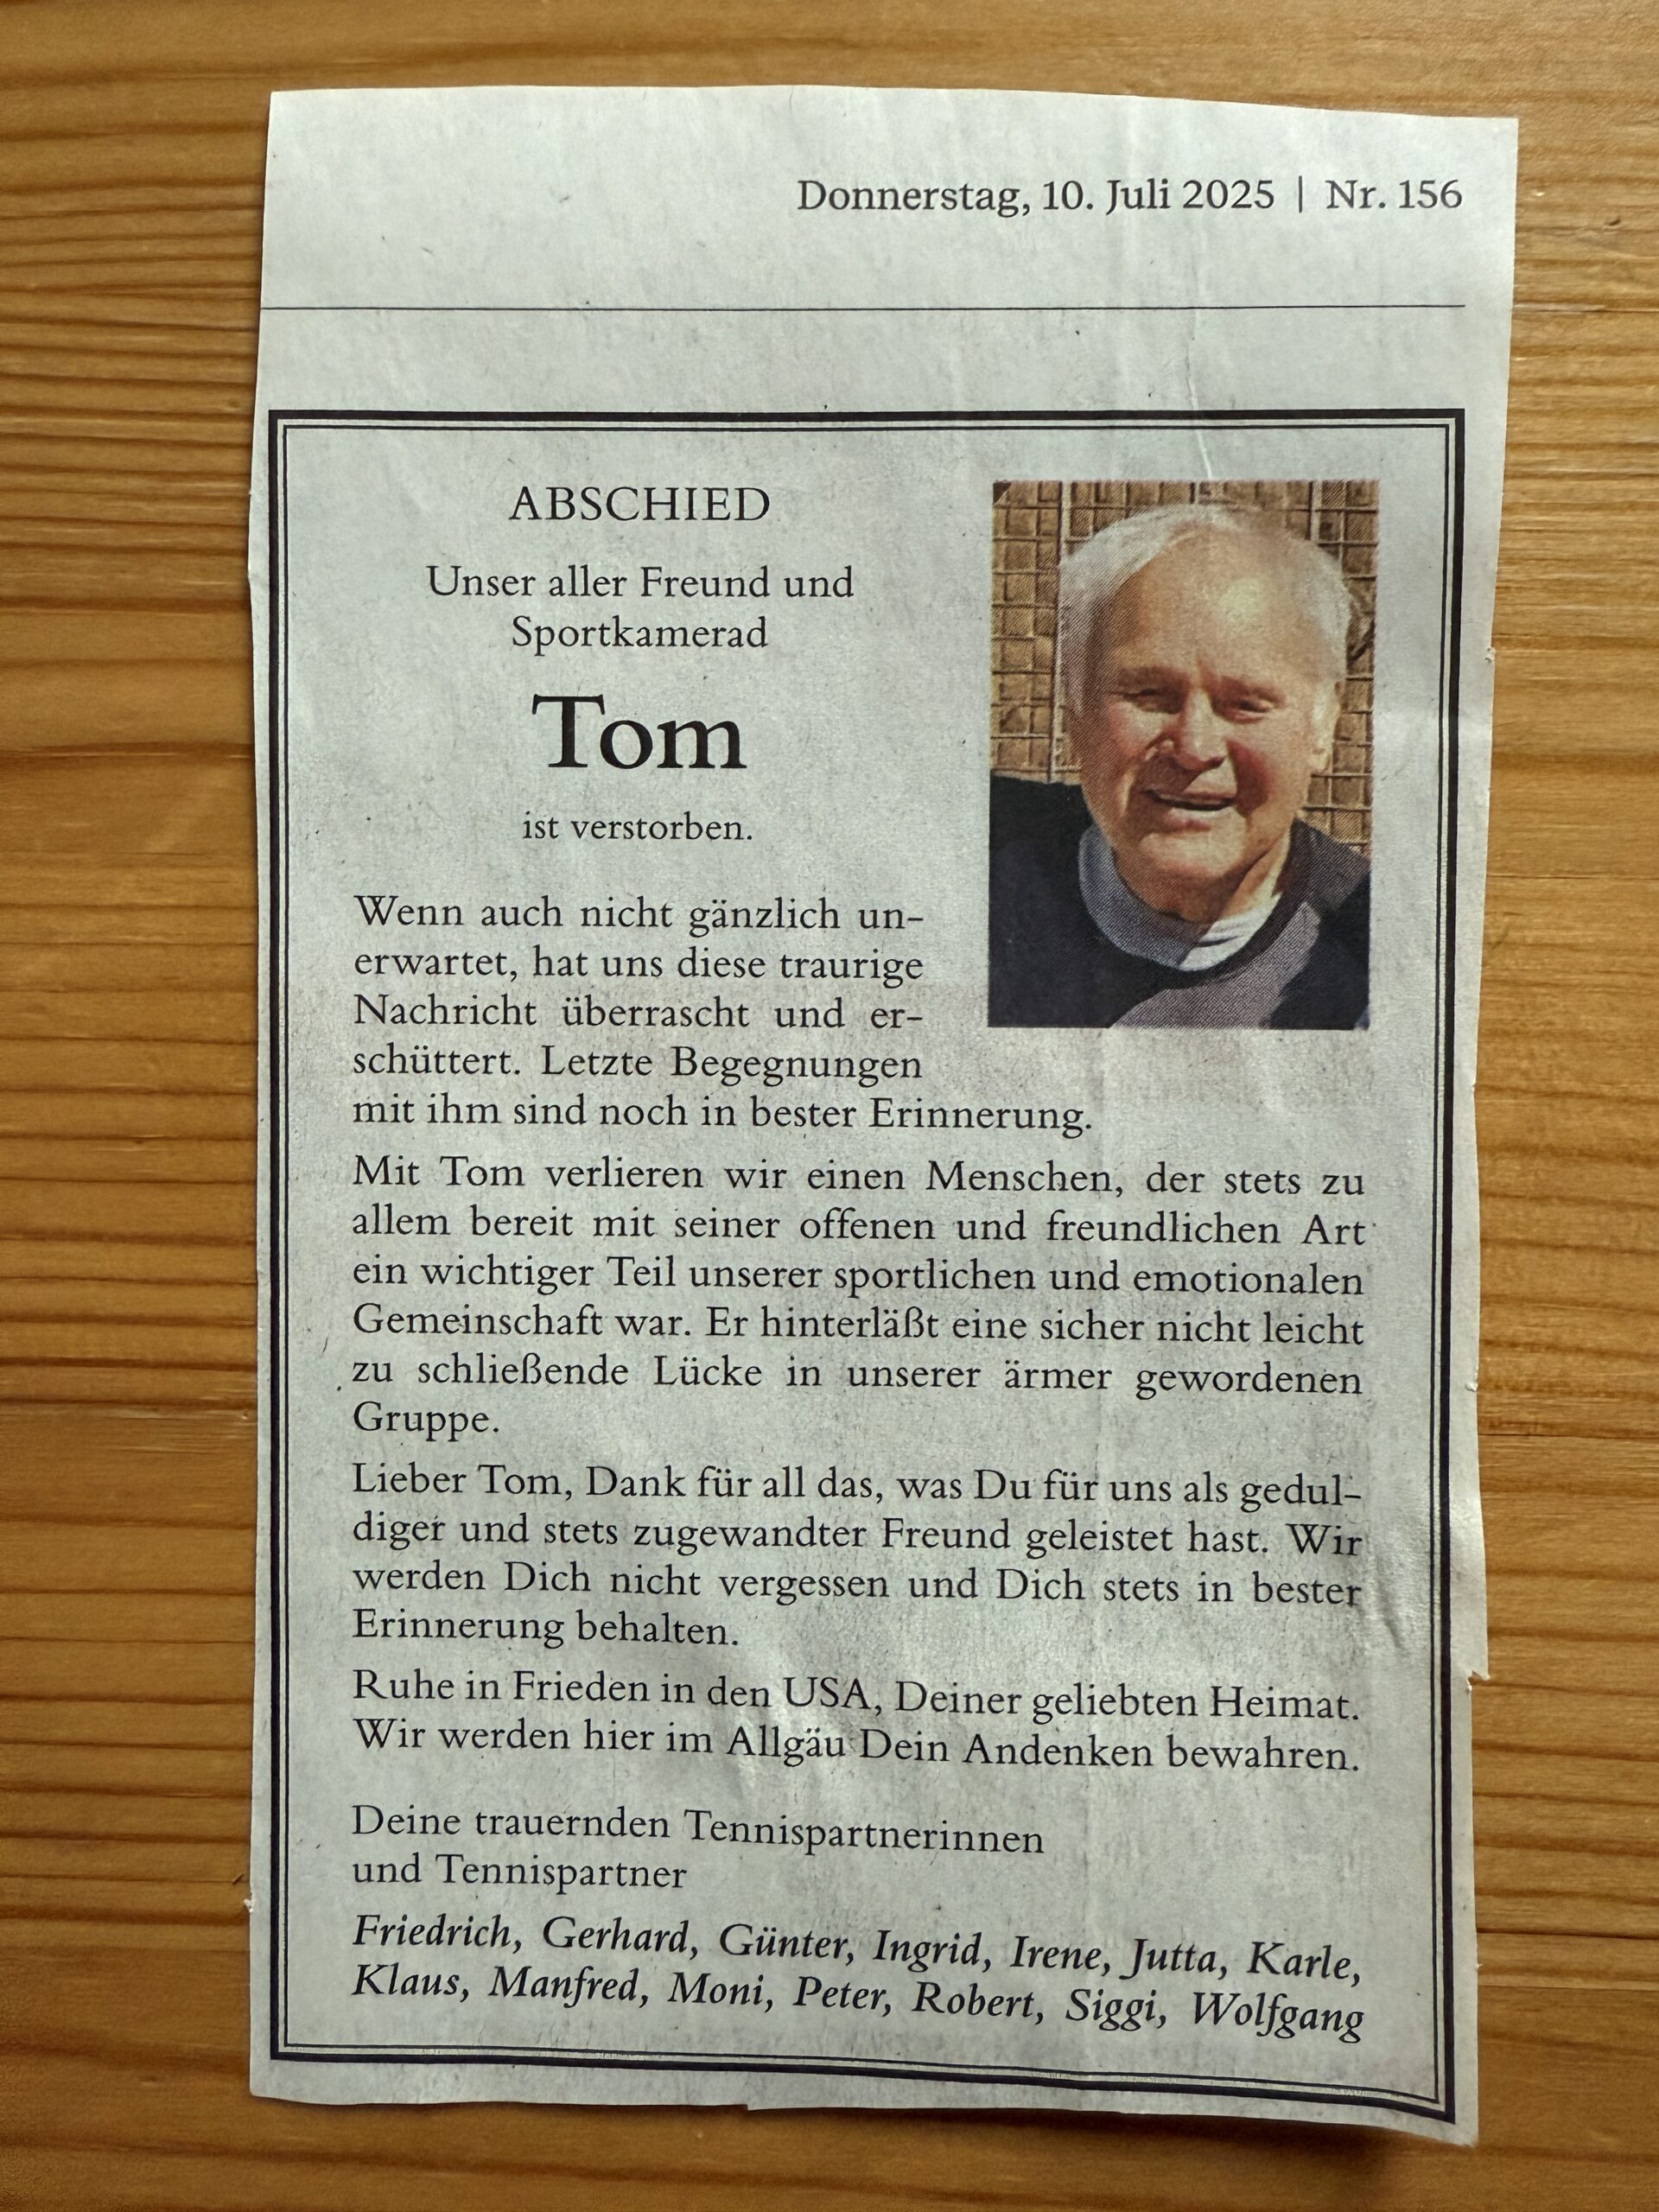 Donnerstag, 10. Juli 2025 | Nr. 156
ABSCHIED
Unser aller Freund und
Sportkamerad
Tom
ist verstorben.
Wenn auch nicht gänzlich un-
erwartet, hat uns diese traurige
Nachricht überrascht und er-
schüttert. Letzte Begegnungen
mit ihm sind noch in bester Erinnerung.
Mit Tom verlieren wir einen Menschen, der stets zu
allem bereit mit seiner offenen und freundlichen Art
ein wichtiger Teil unserer sportlichen und emotionalen
Gemeinschaft war. Er hinterläßt eine sicher nicht leicht
zu schließende Lücke in unserer ärmer gewordenen
Gruppe.
Lieber Tom, Dank für all das, was Du für uns als gedul-
diger und stets zugewandter Freund geleistet hast. Wir
werden Dich nicht vergessen und Dich stets in bester
Erinnerung behalten.
Ruhe in Frieden in den USA, Deiner geliebten Heimat.
Wir werden hier im Allgäu Dein Andenken bewahren.
Deine trauernden Tennispartnerinnen
und Tennispartner
Friedrich, Gerhard, Günter, Ingrid, Irene, Jutta, Karle,
Klaus, Manfred, Moni, Peter, Robert, Siggi, Wolfgang